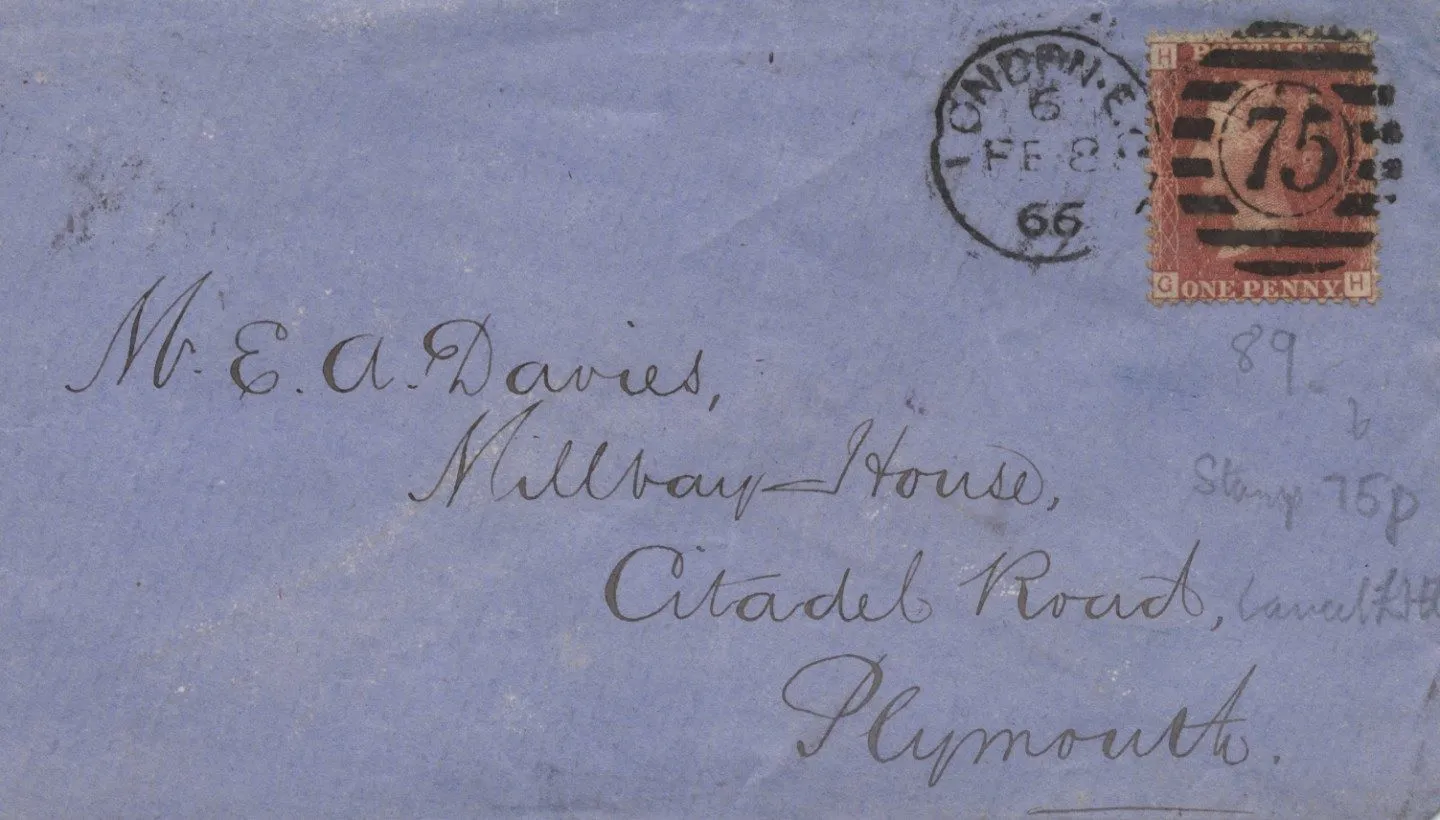 LONDON·E.C
6
FE 8
66
H POSTAGE G
75
G ONE PENNY H
Mr. E. A. Davies,
89
Millbay House,
Stamp 75p
Citadel Road,
Plymouth.